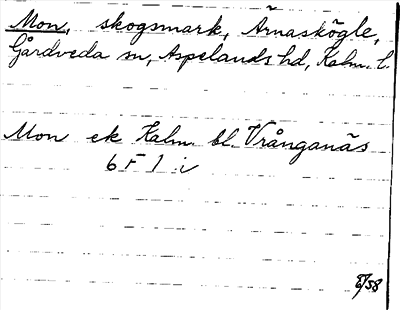 Mon, skogsmark, Arnaskögle,
Gårdveda sn, Aspelands hd, Kalm. l.
Mon ek Kalm. bl. Vrånganäs
6 5 1 i